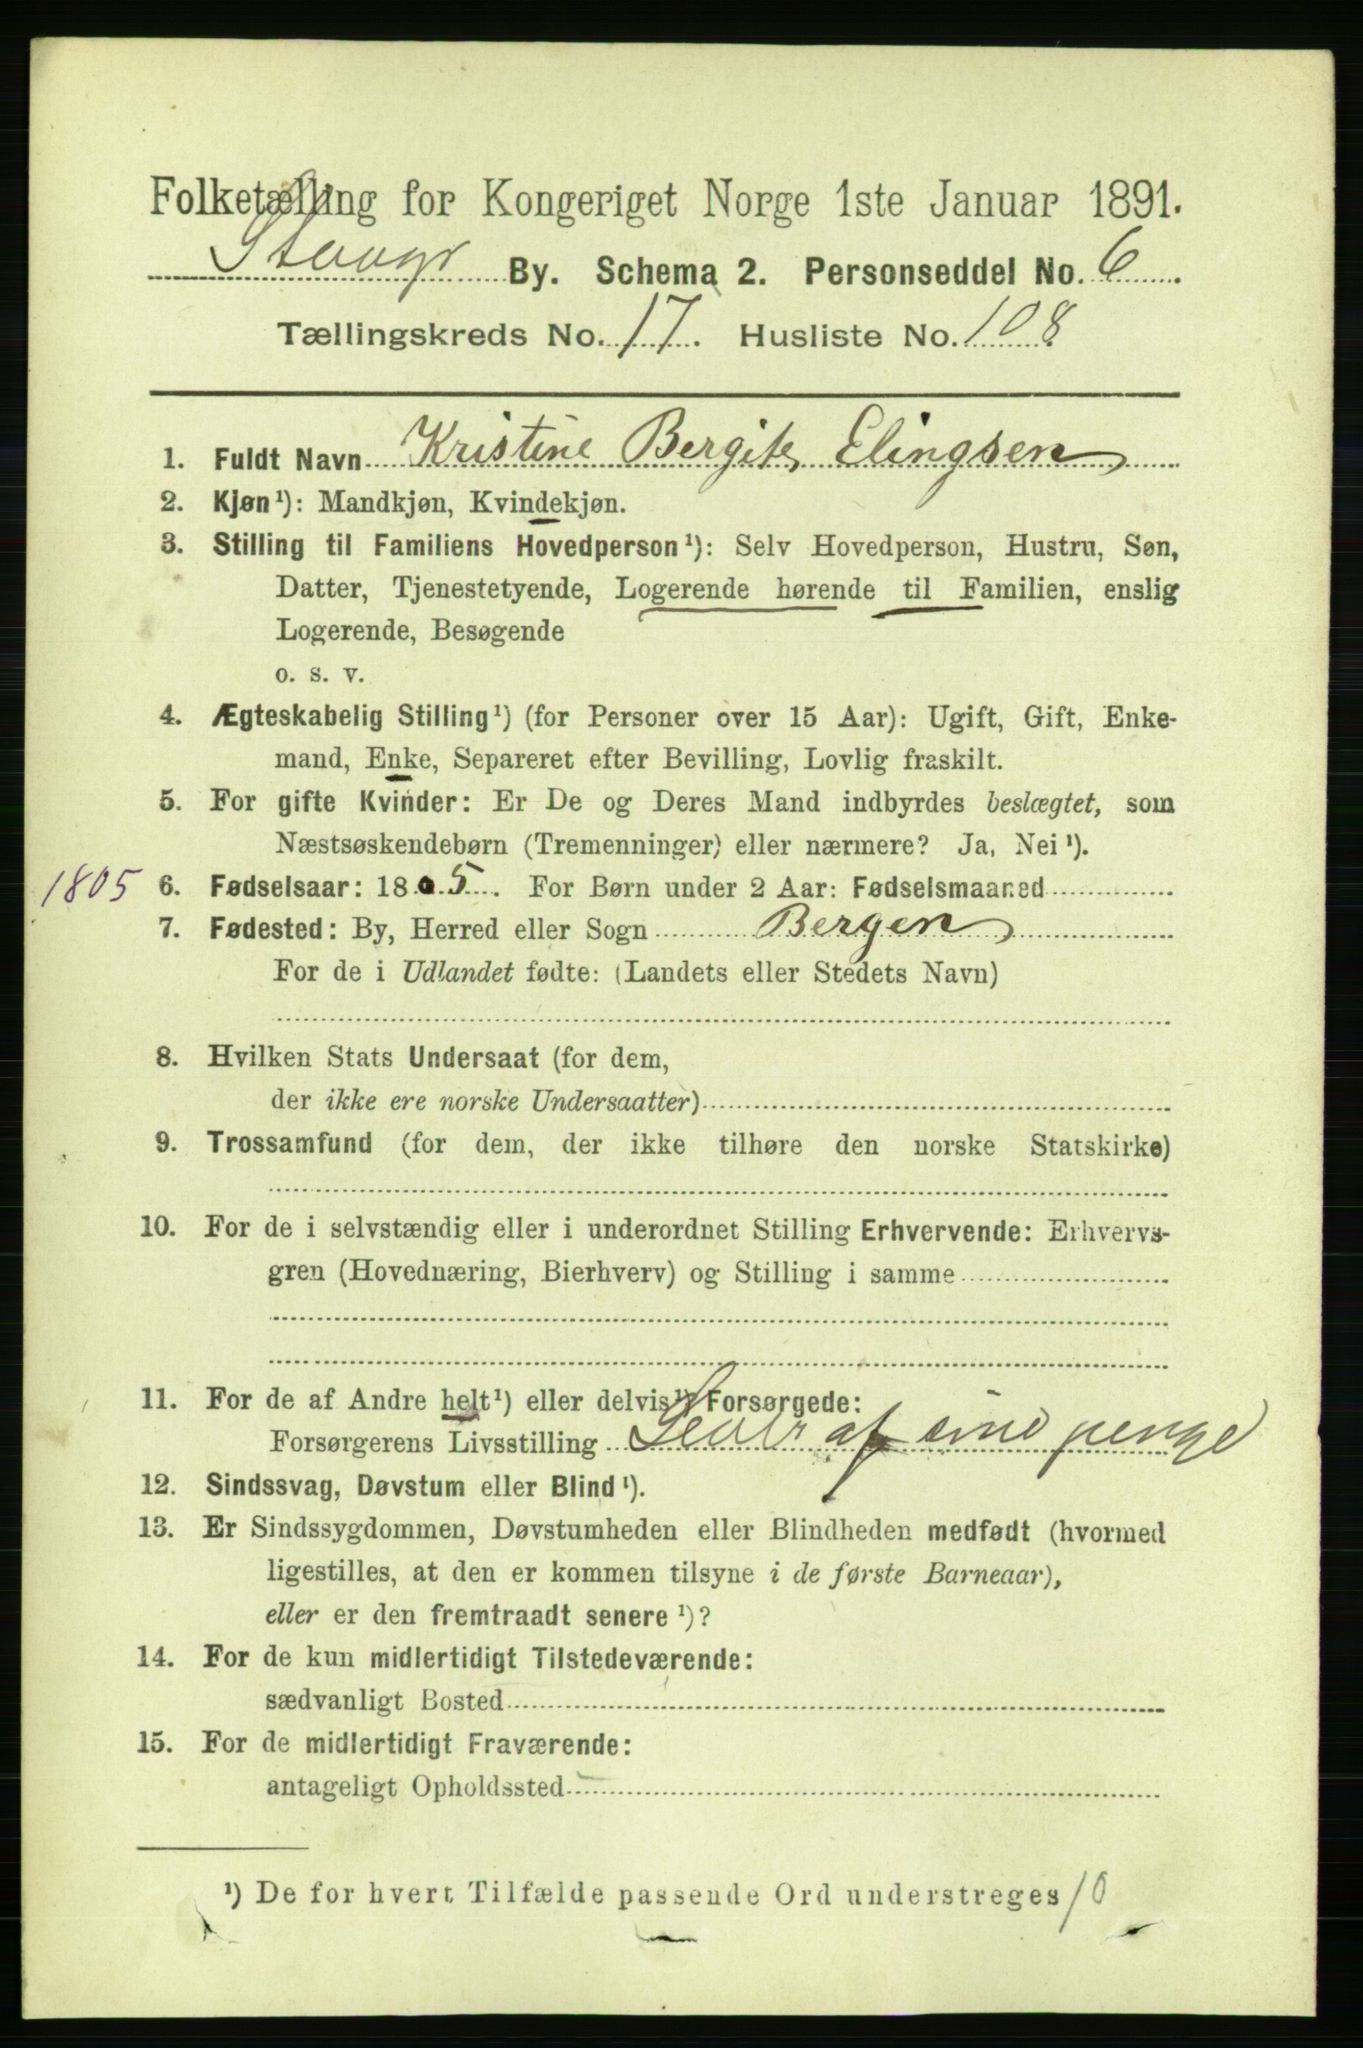 Folketælling for Kongeriget Norge 1ste Januar 1891.
By. Schema 2. Personseddel No. 6
Tællingskreds No. 17. Husliste No. 108
1. Fuldt Navn Kristine Bergite Elingsen
2. Kjøn¹): Mandkjøn, Kvindekjøn.
3. Stilling til Familiens Hovedperson¹): Selv Hovedperson, Hustru, Søn,
Datter, Tjenestetyende, Logerende hørende til Familien, enslig
Logerende, Besøgende
o. s. v.
4. Ægteskabelig Stilling¹) (for Personer over 15 Aar): Ugift, Gift, Enke-
mand, Enke, Separeret efter Bevilling, Lovlig fraskilt.
5. For gifte Kvinder: Er De og Deres Mand indbyrdes beslægtet, som
Næstsøskendebørn (Tremenninger) eller nærmere? Ja, Nei¹).
1805 6. Fødselsaar: 1805. For Børn under 2 Aar: Fødselsmaaned
7. Fødested: By, Herred eller Sogn Bergen
For de i Udlandet fødte: (Landets eller Stedets Navn)
8. Hvilken Stats Undersaat (for dem,
der ikke ere norske Undersaatter)
9. Trossamfund (for dem, der ikke tilhøre den norske Statskirke)
10. For de i selvstændig eller i underordnet Stilling Erhvervende: Erhvervs-
gren (Hovednæring, Bierhverv) og Stilling i samme
11. For de af Andre helt¹) eller delvis¹) Forsørgede:
Forsørgerens Livsstilling Lever af sine penge
12. Sindssvag, Døvstum eller Blind¹).
13. Er Sindssygdommen, Døvstumheden eller Blindheden medfødt (hvormed
ligestilles, at den er kommen tilsyne i de første Barneaar),
eller er den fremtraadt senere¹)?
14. For de kun midlertidigt Tilstedeværende:
sædvanligt Bosted
15. For de midlertidigt Fraværende:
antageligt Opholdssted
¹) De for hvert Tilfælde passende Ord understreges 10